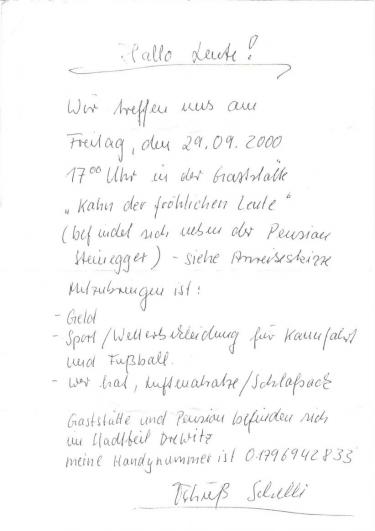 Hallo Leute!
Wir treffen uns am
Freitag, den 29.09.2000
17⁰⁰ Uhr in der Gaststätte
„Kahn der fröhlichen Leute"
(befindet sich neben der Pension
Steinegger) - siehe Anreiseskizze
Mitzubringen ist:
- Geld
- Sport/Wetterbekleidung für Kannfahrt
und Fußball.
- wer hat, Luftmatratze/Schlafsack
Gaststätte und Pension befinden sich
im Stadtteil Drewitz
meine Handynummer ist 01796942833
Tschüß Schelli